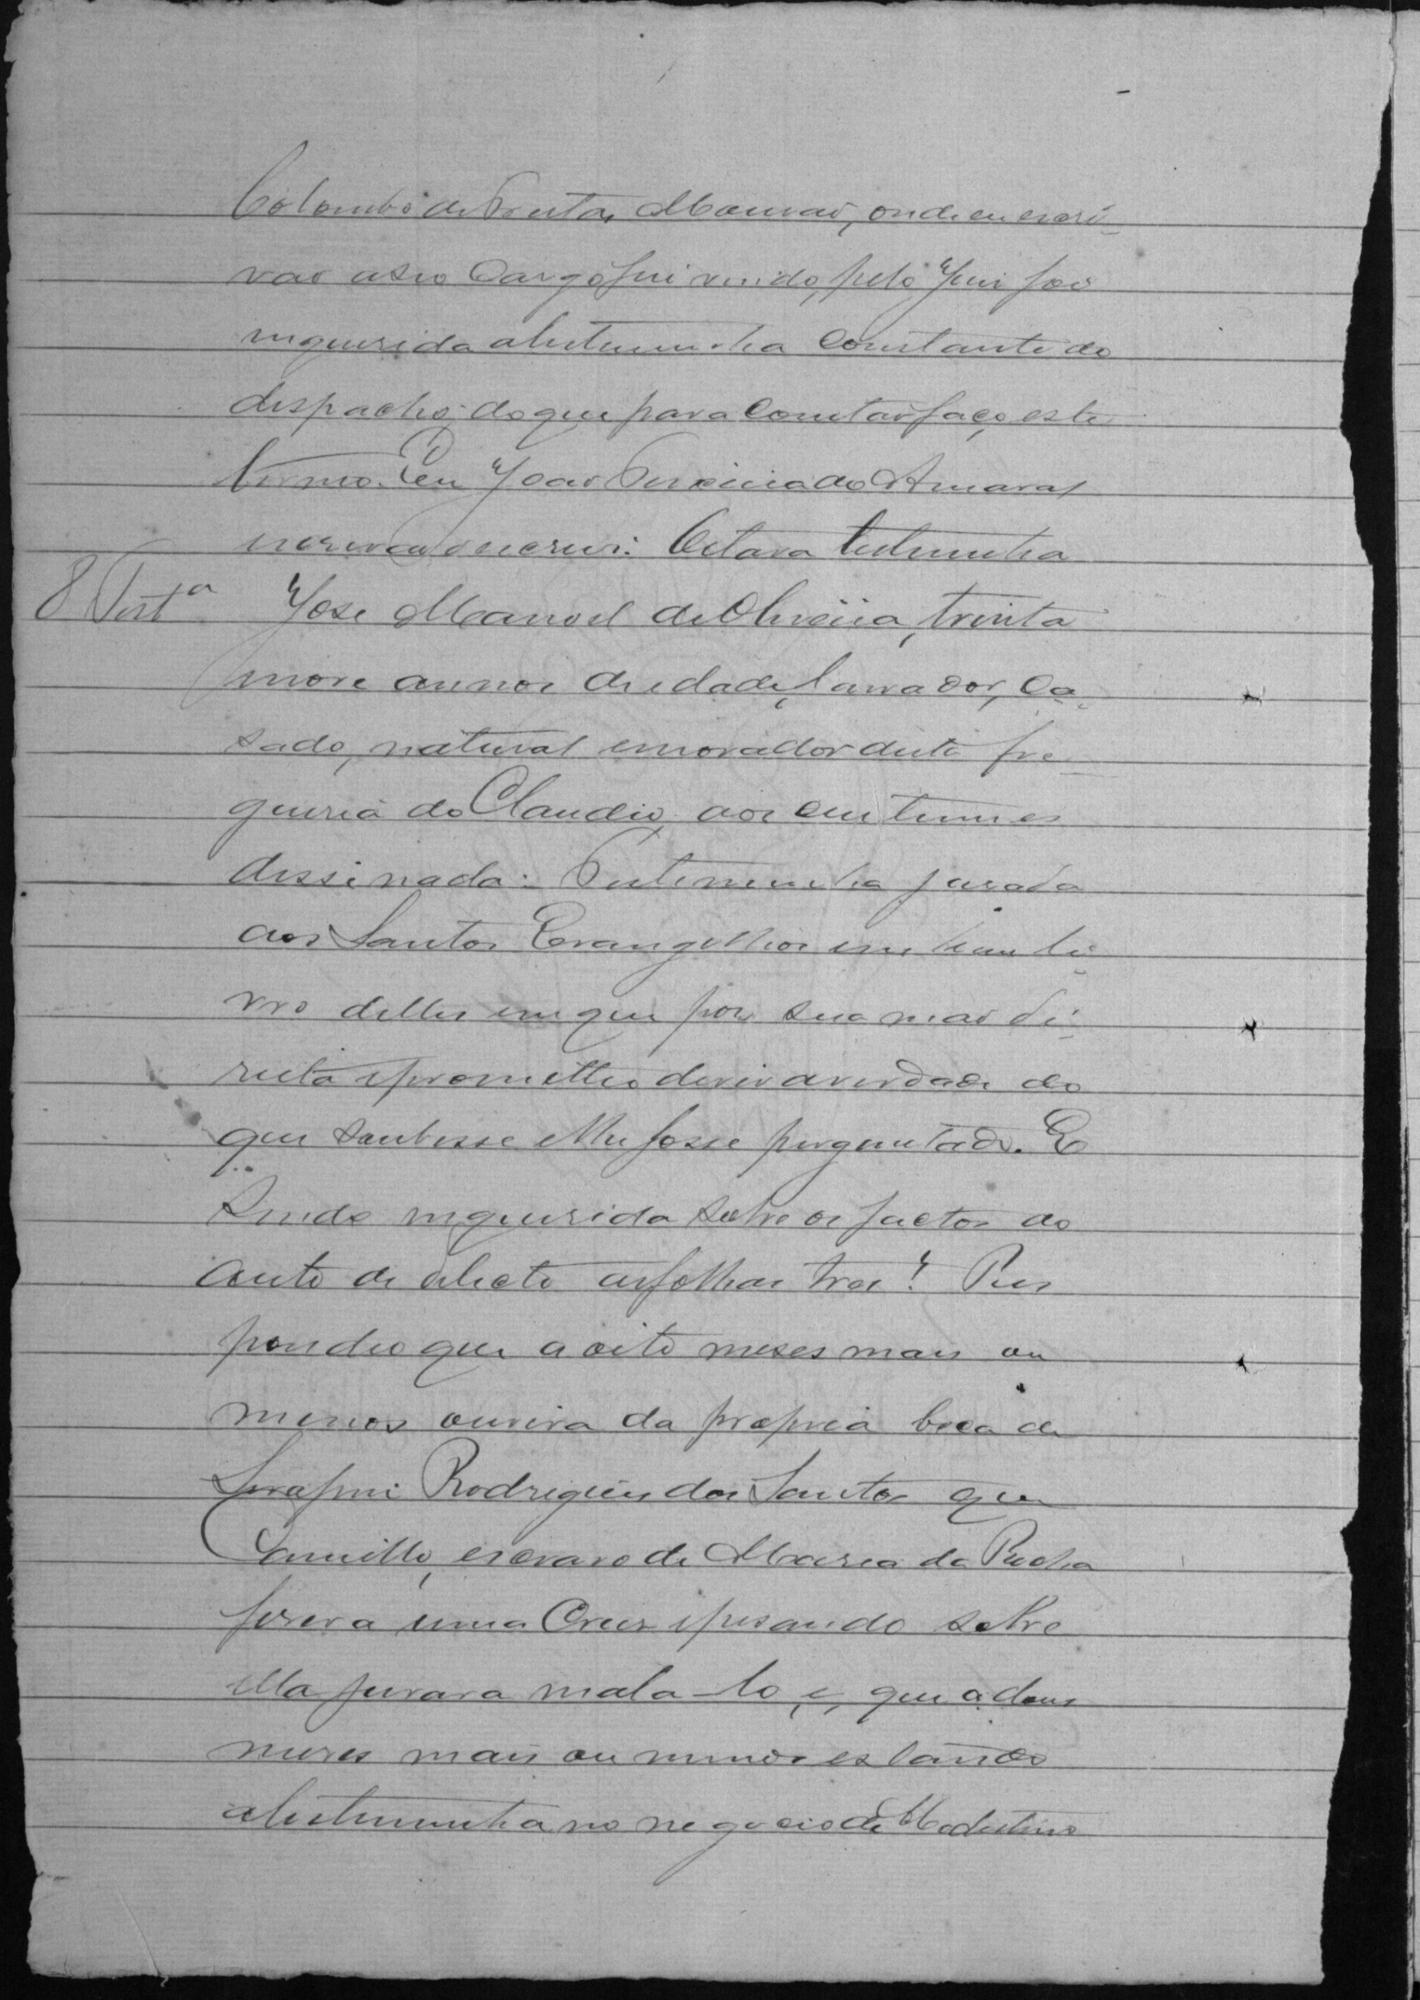 Colombo de Freitas Mourão, onde eu escri-
vão a seo cargo fui vindo, pelo Juiz foi
inquirida a testemunha constante do
despacho; do que para constar faço este
termo. Eu João Ferreira do Amaral
escrivão o escrevi. Oitava testemunha
8 Testª José Manoel de Oliveira, trinta
nove annos de edade, lavrador, ca-
sado, natural e morador desta fre-
guesia do Claudio, aos custumes
disse nada: Testemunha jurada
aos Santos Evangelhos em hum li-
vro delles em que poz sua mão di-
reita e prometteo diser a verdade do
que soubesse e lhe fosse perguntado. E
sendo inquirida sobre os factos do
auto de delicto as folhas tres? Res
pondeo que a oito meses mais ou
menos ouvira da propria boca de
Serafim Rodrigues dos Santos que
Camillo, escravo de Maria da Rocha
fisera uma Cruz e pisando sobre
ella jurara mata-lo, e, que a dous
meses mais ou menos estando
a testemunha no negocio de Modestino